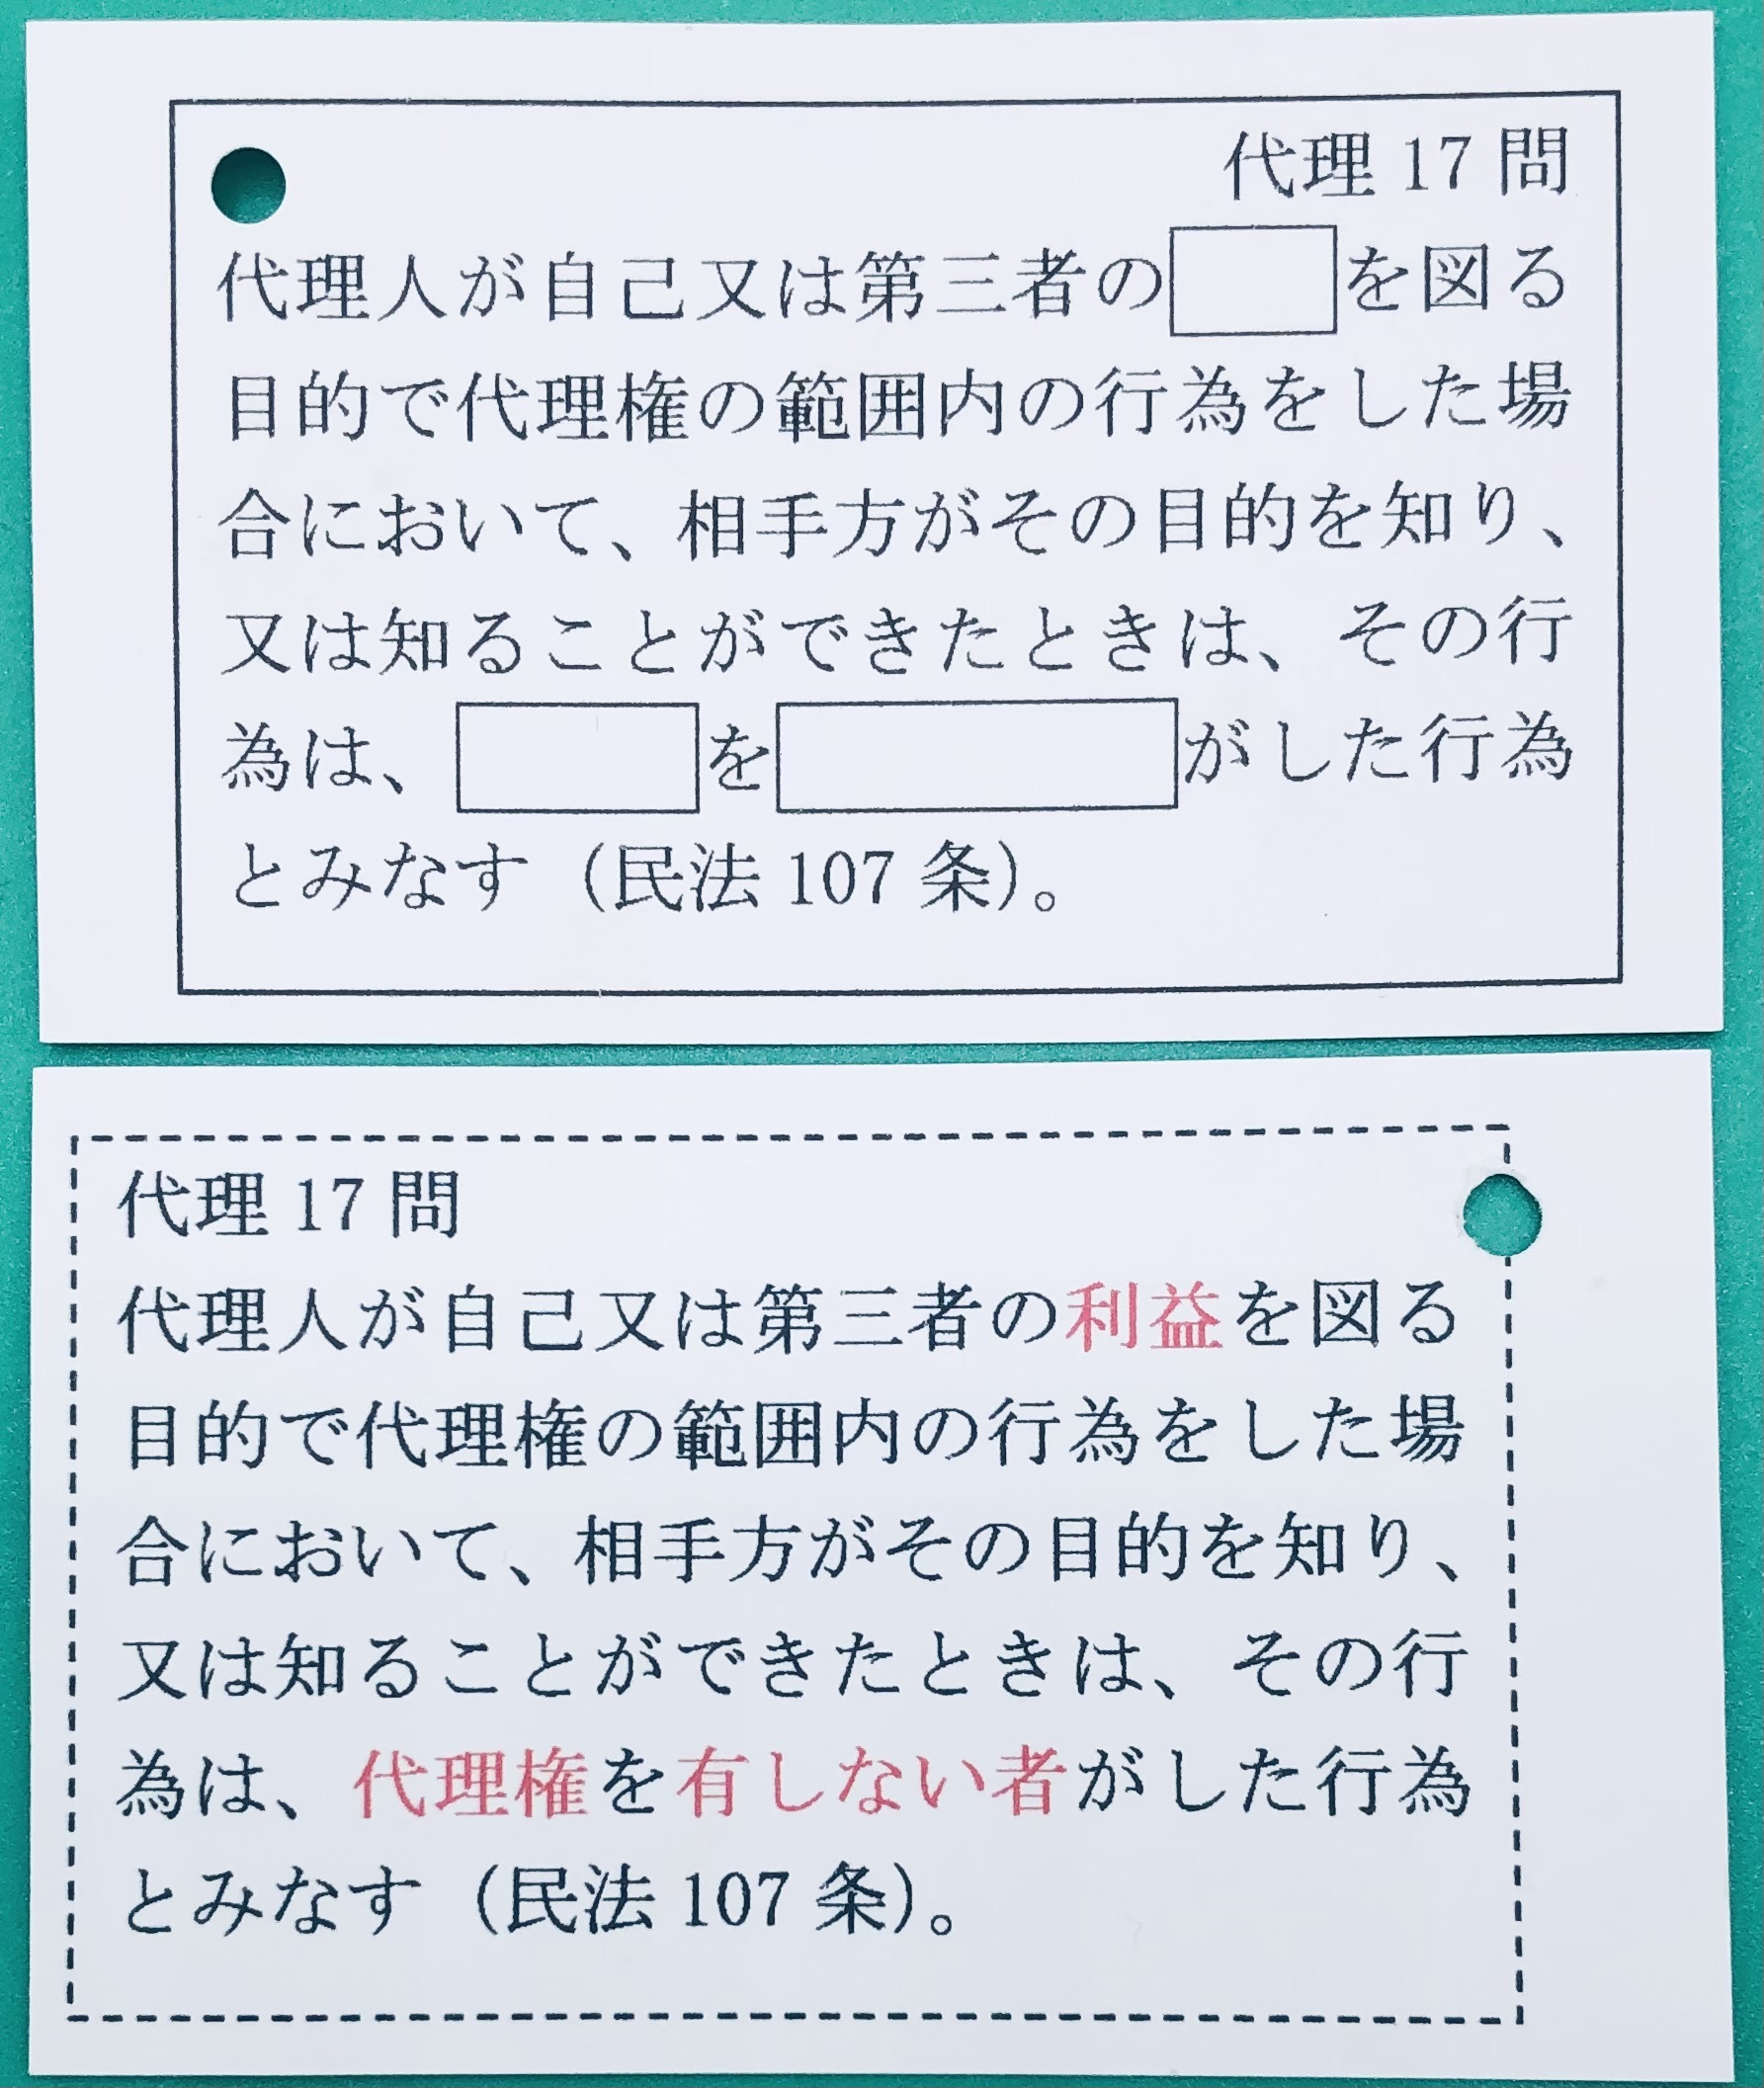 代理 17 問
代理人が自己又は第三者の を図る
目的で代理権の範囲内の行為をした場
合において、相手方がその目的を知り、
又は知ることができたときは、その行
為は、 を がした行為
とみなす（民法 107 条）。
代理 17 問
代理人が自己又は第三者の利益を図る
目的で代理権の範囲内の行為をした場
合において、相手方がその目的を知り、
又は知ることができたときは、その行
為は、代理権を有しない者がした行為
とみなす（民法 107 条）。